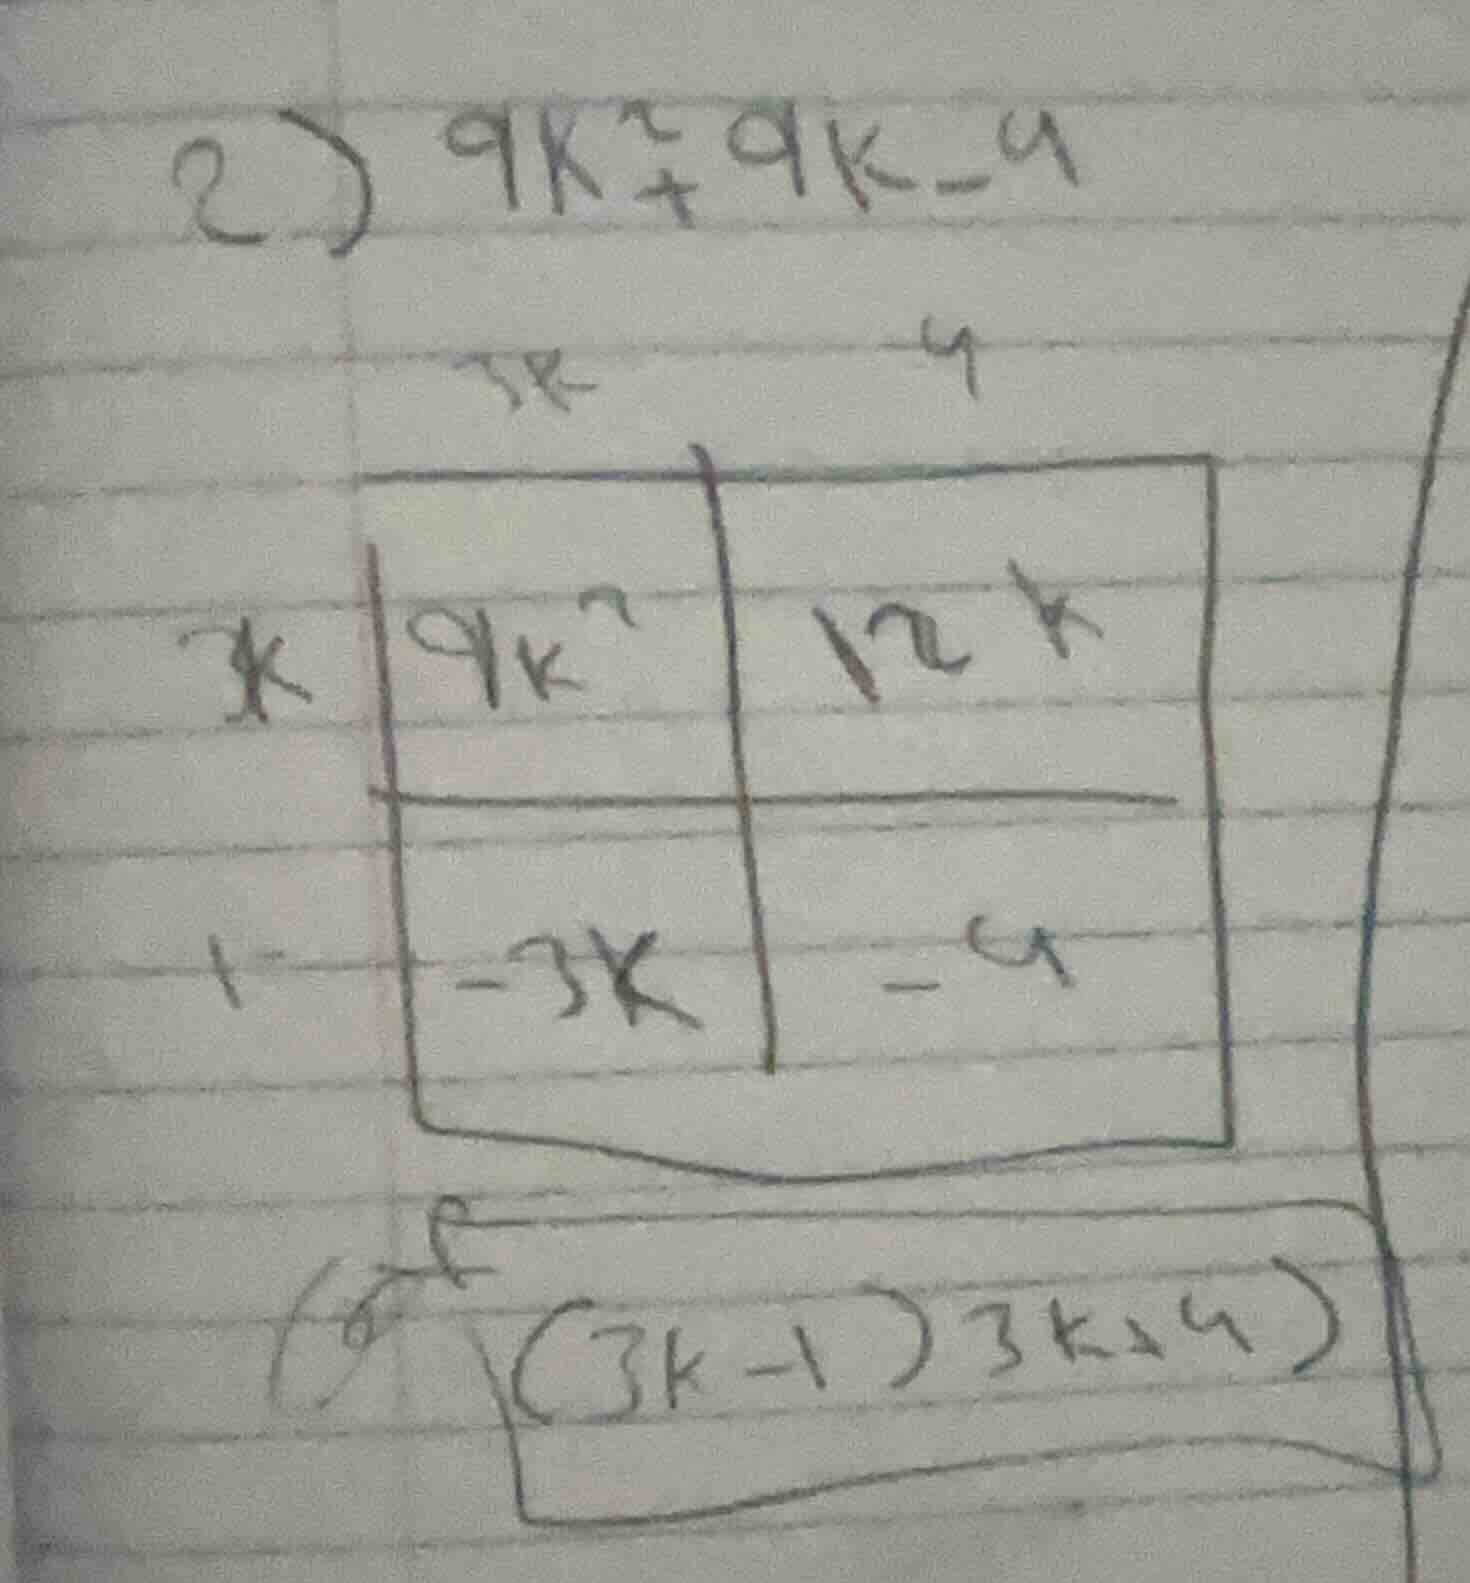 2) 9k² + 9k - 4
3k 4
3k 9k² 12k
1 -3k -4
(3k-1)3k+4)